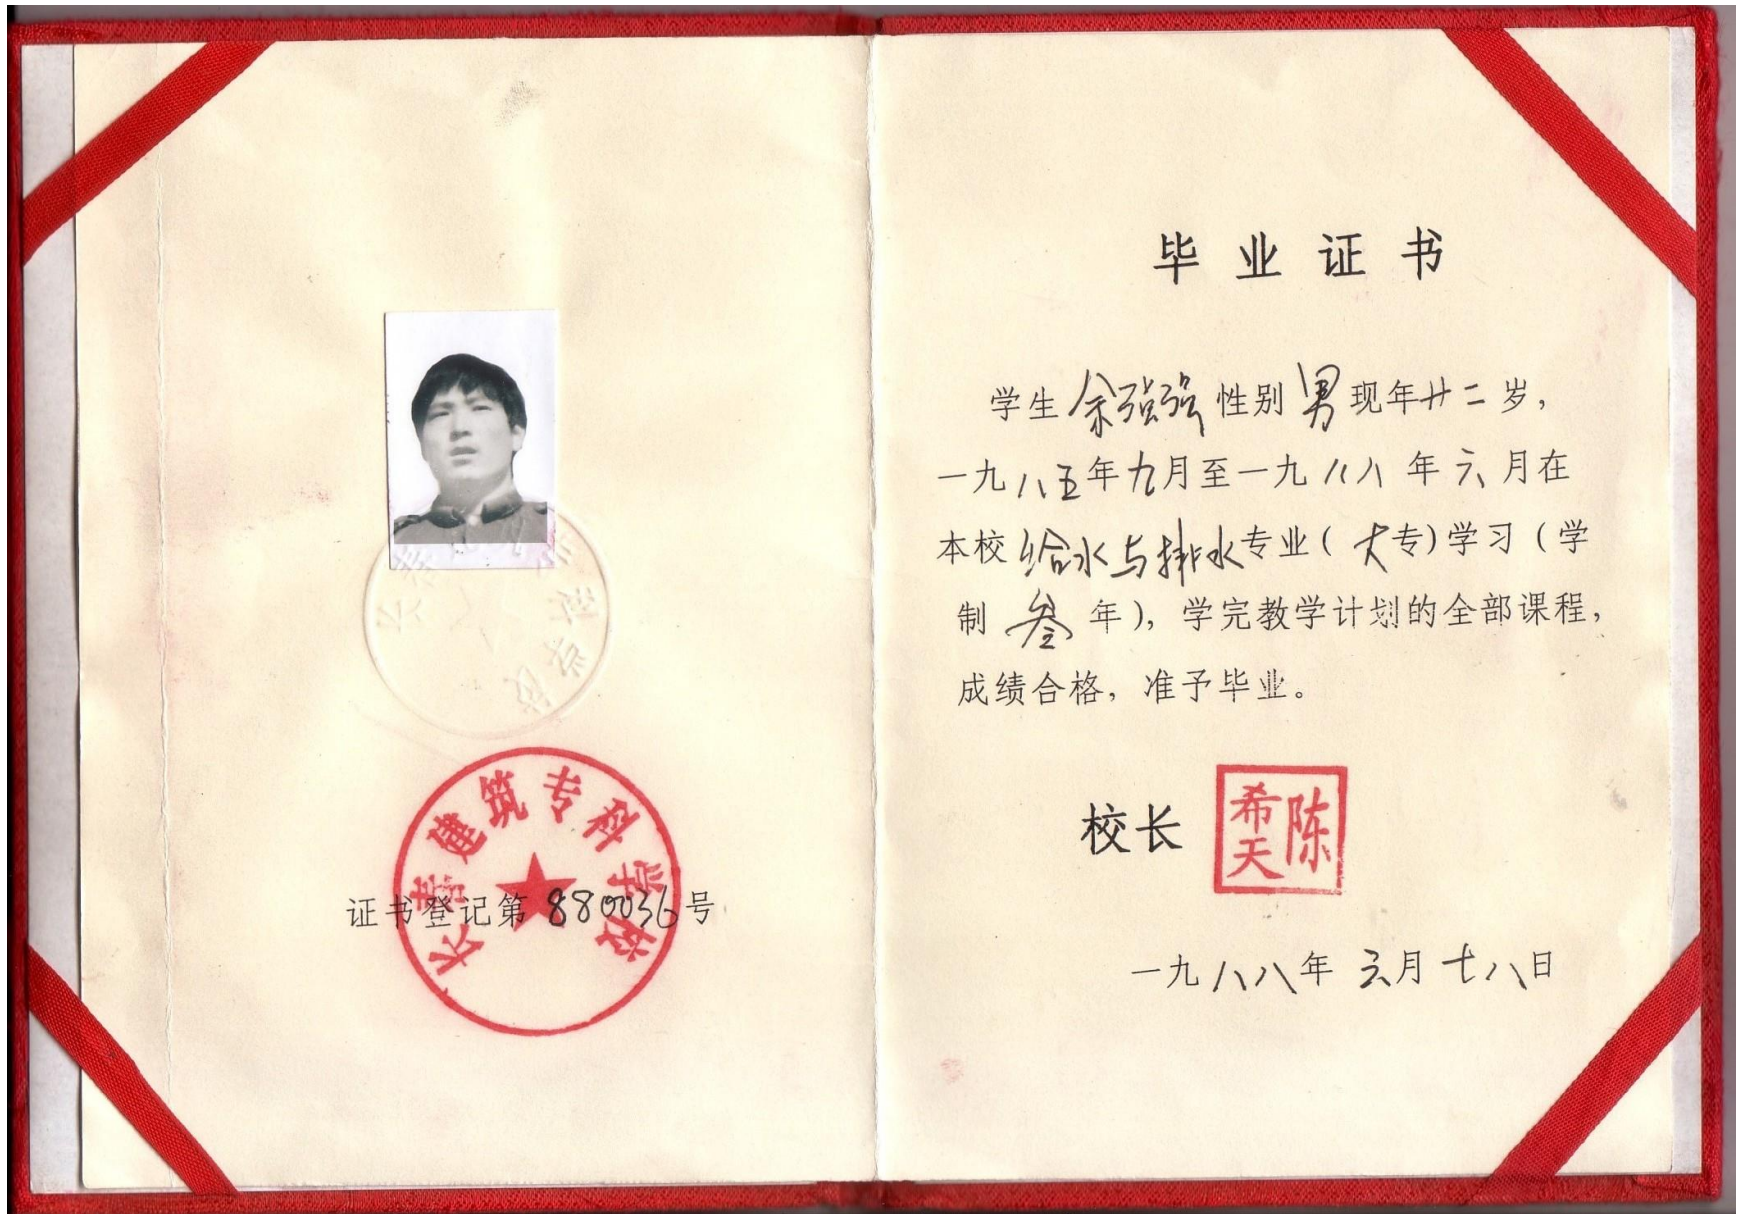 长春建筑专科学校
证书登记第880036号
毕业证书
学生余强强性别男现年廿二岁，
一九八五年九月至一九八八年六月在
本校给水与排水专业(大专)学习(学
制叁年)，学完教学计划的全部课程，
成绩合格，准予毕业。
校长 陈希天
一九八八年六月七八日